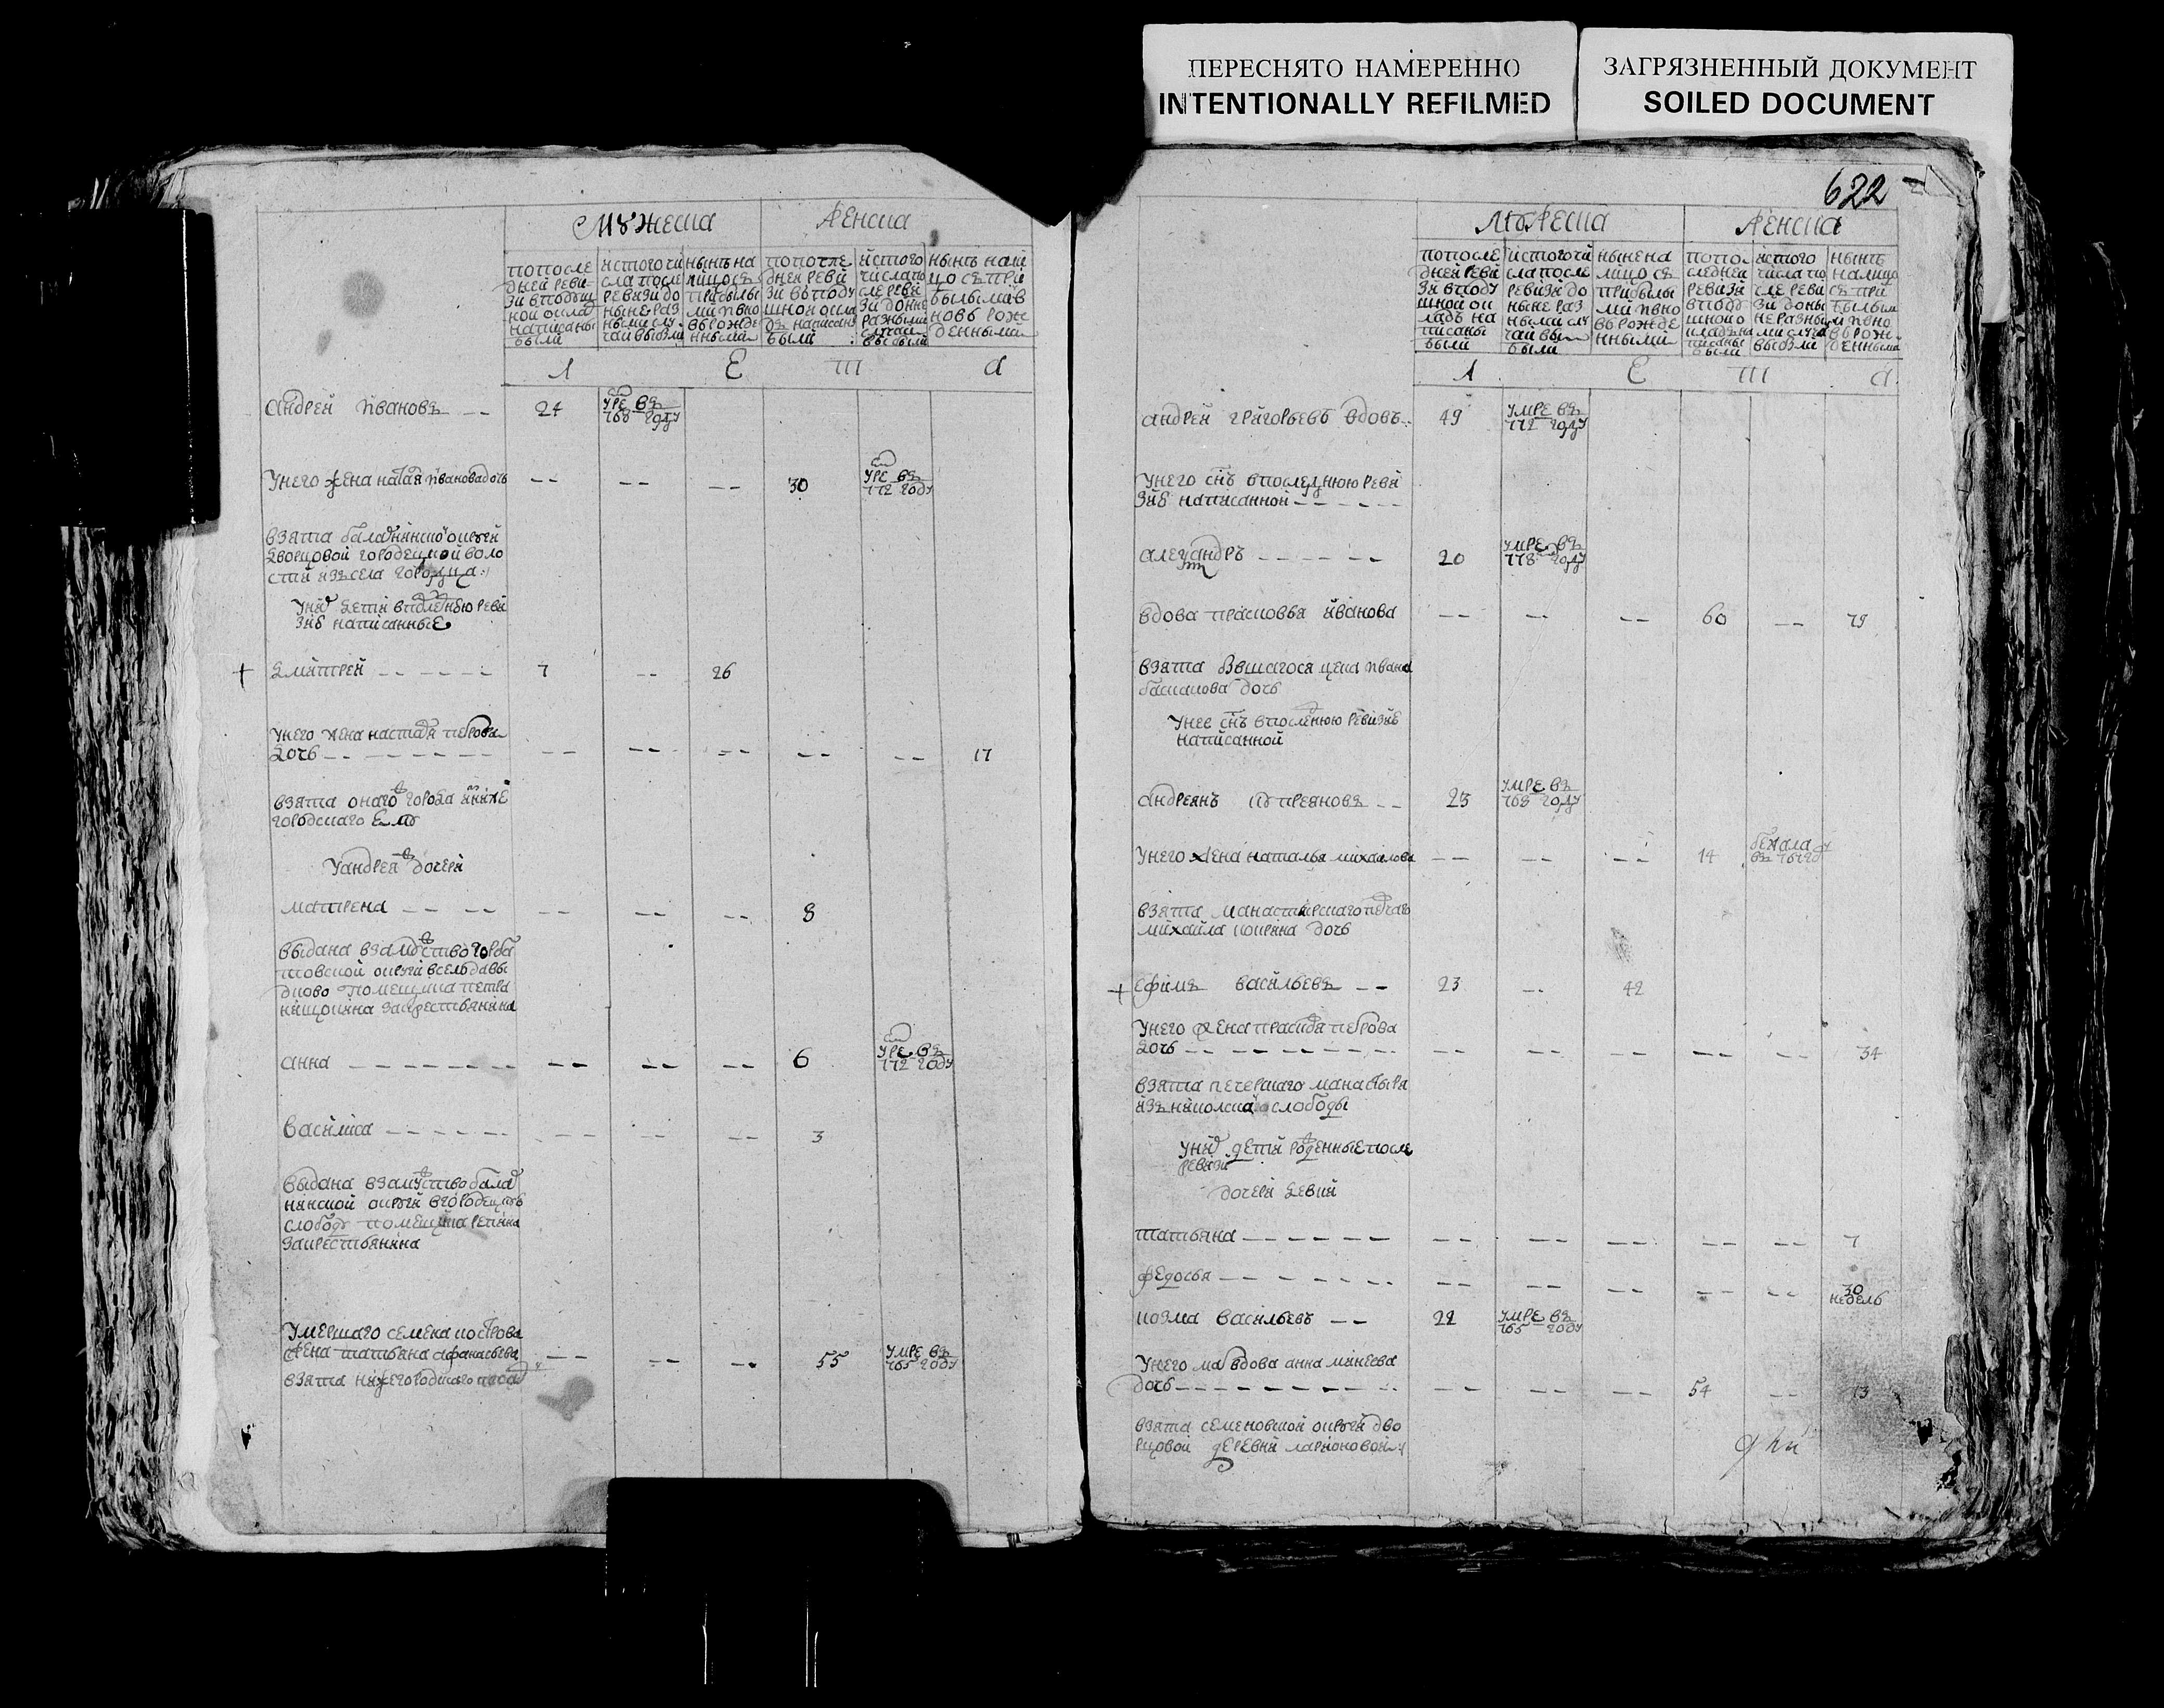 ПЕРЕСНЯТО НАМЕРЕННО
INTENTIONALLY REFILMED
ЗАГРЯЗНЕННЫЙ ДОКУМЕНТ
SOILED DOCUMENT
622
Мужеска Женска
попосле
дней реви
зи вподуш
ной окла
написаны
были
истого чи
сла после
ревизи до
ныне раз
ными слу
чаи выбыли
ныне на
лицо съ
прибылы
ми и вно
вь рожде
нными
попосле
дней реви
зи вподу
шной окла
дъ написаны
были
истого
числа по
сле реви
зи доне
разными
случаи
выбыли
нынь нали
цо съ при
былыми в
новь рож
денными
Л Е Т а
андрей иванов 24 умре въ 768 году
унего жена наталя иванова дочь 30 умре въ 772 году
взята балахнинской округи
дворцовой городецкой воло
сти изъ села городца
уних дети в последнюю реви
зию написанные
дмитрей 7 26
унего жена настася петрова
дочь 17
взята оного города нижне
городского
у андрея дочери
матрена 8
выдана взамужство горба
товской округи всельдавы
дково помещика петра
за крестьянина
анна 6 умре въ 772 году
василиса 3
выдана взамужство балах
нинской округи вгородецкую
слободу помещика репнина
за крестьянина
умершаго семена
жена татьяна афанасьева 55 умре въ 765 году
взята нижегородцкого
Мужеска Женска
попосле
дней реви
зи вподу
шной ок
ладъ на
писаны
были
истого чи
сла после
ревизи до
ныне раз
ными слу
чаи вы
были
ныне на
лицо съ
прибылы
ми и вно
вь рожде
нными
попо
следней
ревизи
вподу
шной о
кладъ на
писаны
были
истого
числа по
сле реви
зи доны
не разны
ми случаи
выбыли
нынь
налицо
съ при
былым
и вно
вь рож
денными
Л Е Т а
андрей григорьевъ вдовъ 49 умре въ 772 году
унего снъ в последнюю реви
зию написанной
александръ 20 умре въ 778 году
вдова прасковья иванова 60 79
взята ивана
дочь
унее снъ в последнюю ревизию
написанной
андреянъ купреяновъ 23 умре въ 768 году
унего жена наталья михаилова 14 бежала
взята манастирскаго
михаила дочь
ефимъ васильевъ 23 42
унего жена прасковя петрова
дочь 34
взята печерскаго манастыря
изъ никольской слободы
уних дети рожденные после
ревизи
дочери девки
татьяна 7
федосья 30 недель
козма васильевъ 22 умре въ 765 году
унего мать вдова анна минеева
дочь 54 73
взята семеновской округи дво
рцовой деревни ларионовой